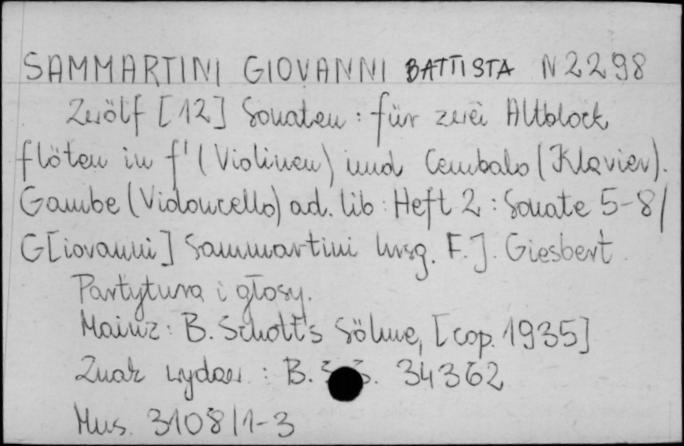 SAMMARTINI GIOVANNI BATTISTA N 2298
Zwölf [12] Sonaten : für zwei Altblock
flöten in f' (Violinen) und Cembalo (Klavier).
Gambe (Violoncello) ad. lib : Heft 2 : Sonate 5-8/
G[iovanni] Sammartini hrsg. F. J. Giesbert.
Partytura i głosy.
Mainz : B. Schott's Söhne, [cop. 1935]
Znak wydaw. : B. S. 34362
Mus. 3108/1-3